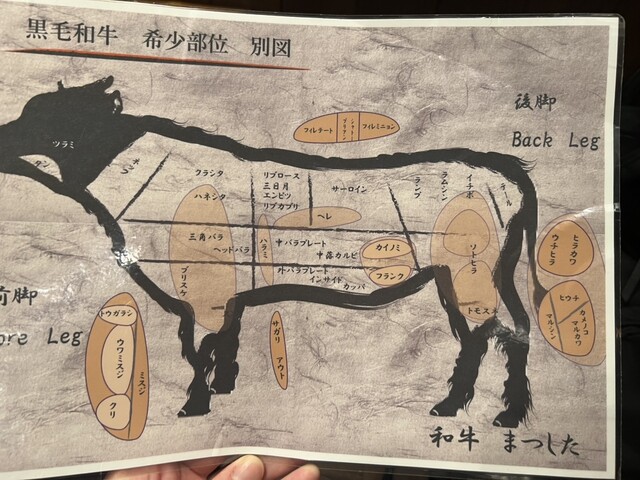 黒毛和牛 希少部位 別図
後脚
Back Leg
ツラミ
タン
ネック
クラシタ
ハネシタ
リブロース
三日月
エンピツ
リブカブリ
サーロイン
ヒレ
フィレテート
シャトーブリアン
フィレミニヨン
ランプ
ラムシン
イチボ
テール
三角バラ
ヘッドバラ
ブリスケ
ハラミ
中バラプレート
中落カルビ
カイノミ
外バラプレート
インサイド
カッパ
フランク
ソトヒラ
トモスネ
ウチヒラ
ヒラカワ
ヒウチ
カメノコ
マルカワ
マルシン
前脚
ore Leg
トウガラシ
ウワミスジ
ミスジ
クリ
サガリ
アウト
和牛 まつした